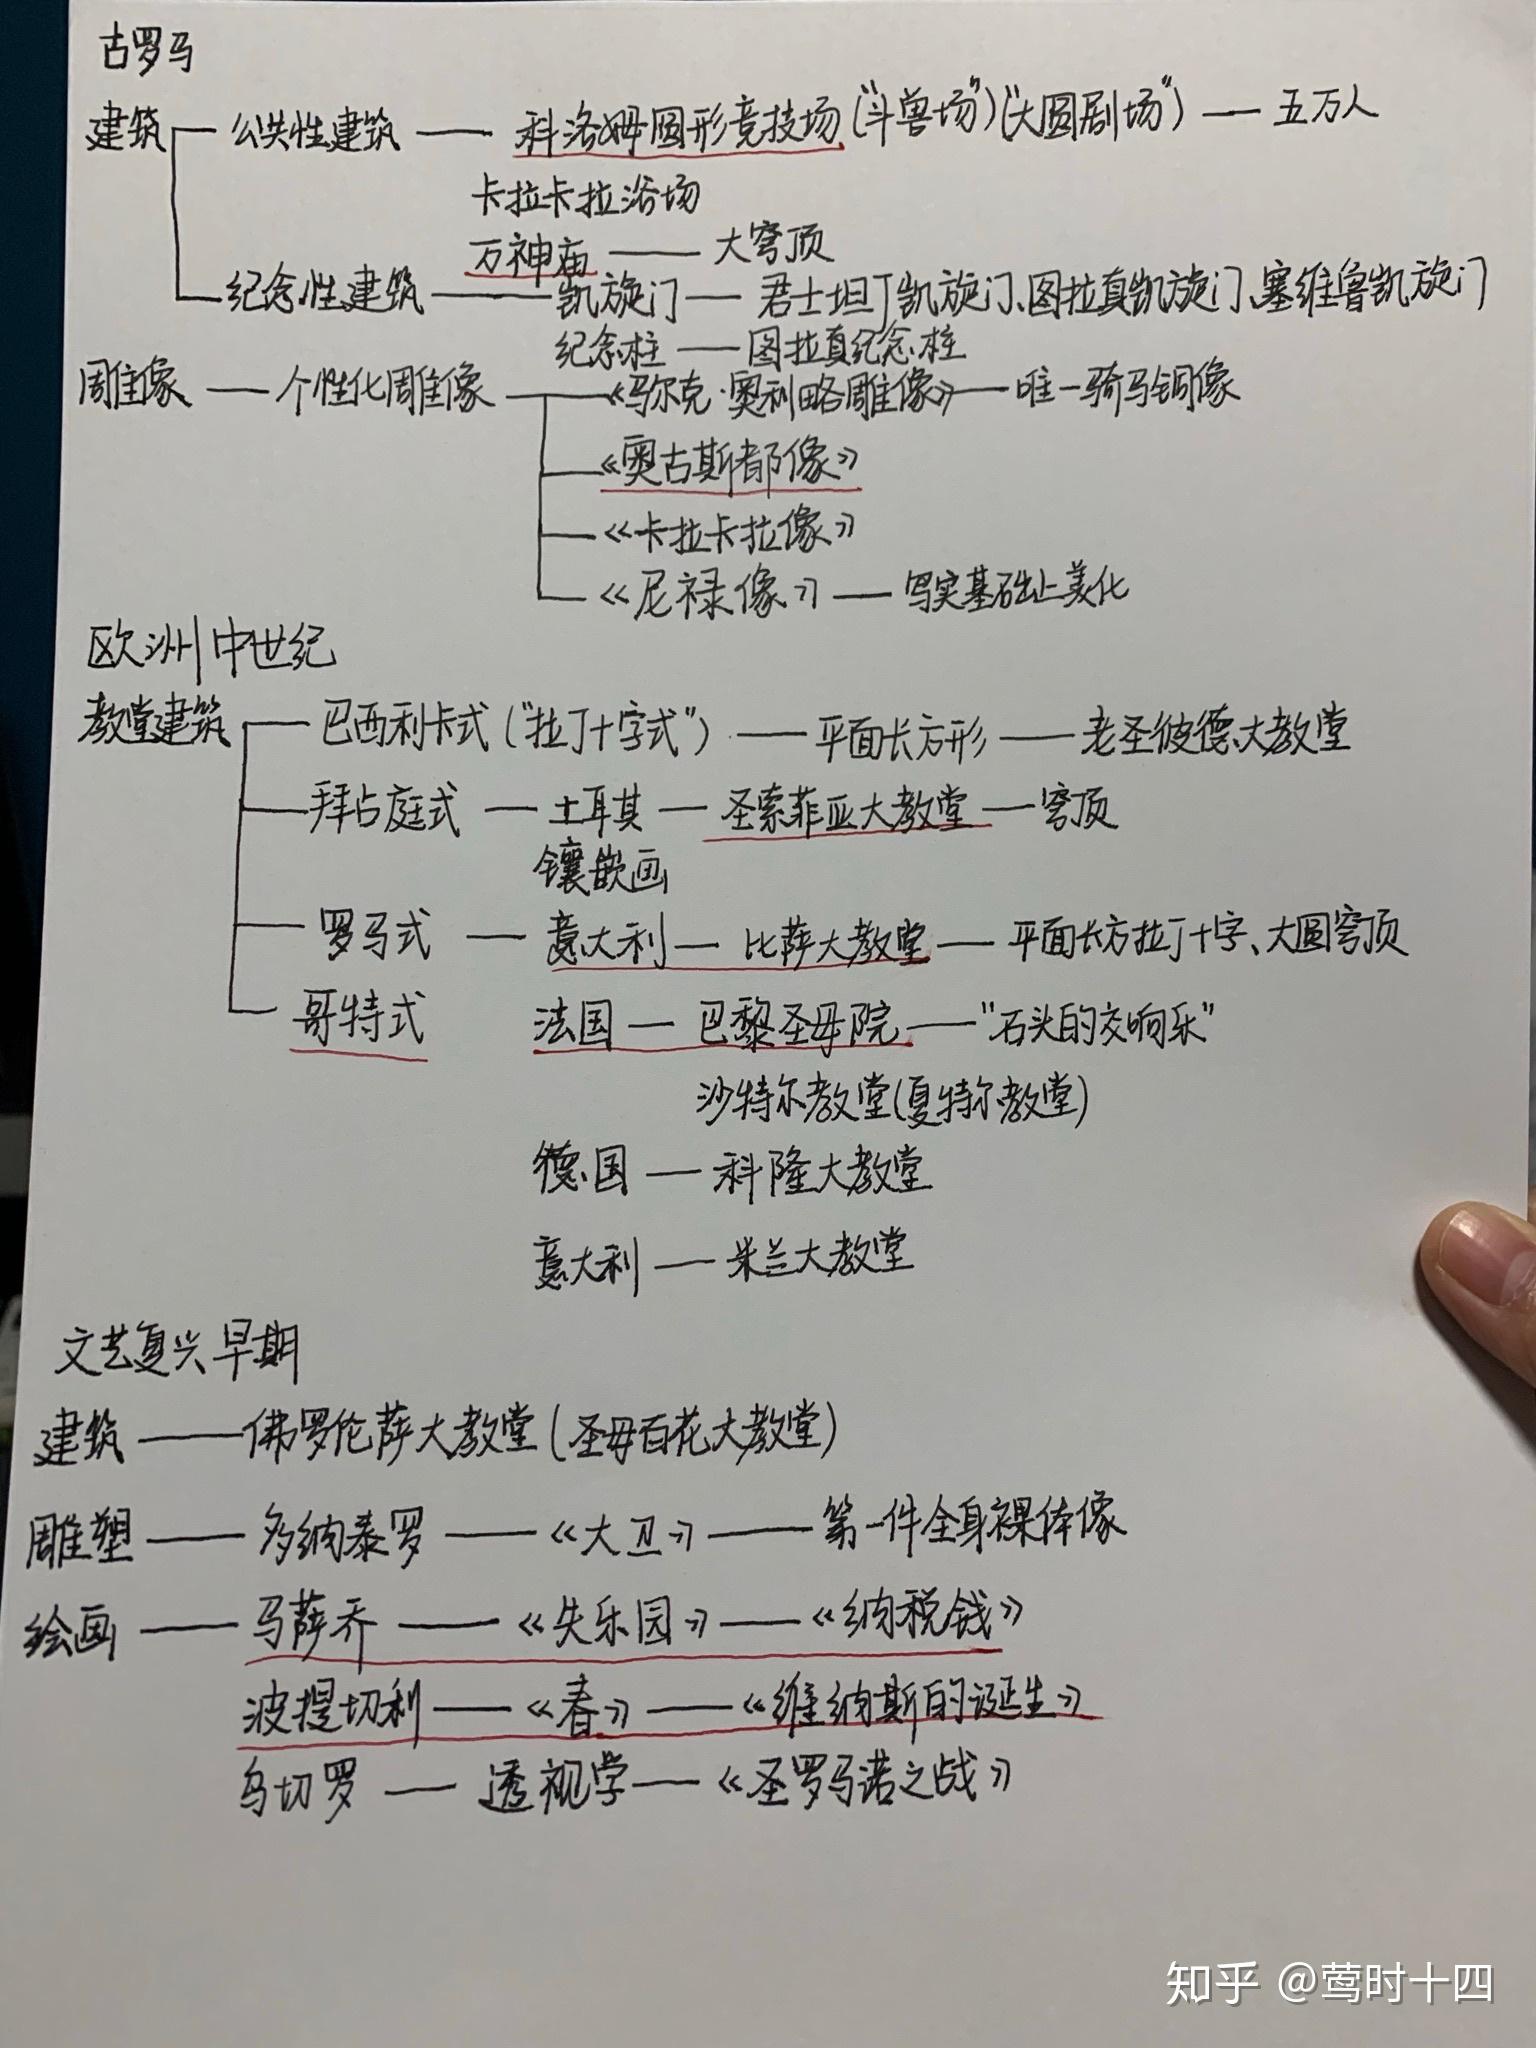 古罗马
建筑 公共性建筑 — 科洛姆圆形竞技场("斗兽场")("大圆剧场") — 五万人
卡拉卡拉浴场
万神庙 — 大穹顶
纪念性建筑 — 凯旋门 — 君士坦丁凯旋门、图拉真凯旋门、塞维鲁凯旋门
纪念柱 — 图拉真纪念柱
雕像 — 个性化雕像 — 《马尔克·奥利略雕像》 — 唯一骑马铜像
《奥古斯都像》
《卡拉卡拉像》
《尼禄像》 — 写实基础上美化
欧洲中世纪
教堂建筑 巴西利卡式("拉丁十字式") — 平面长方形 — 老圣彼德大教堂
拜占庭式 — 土耳其 — 圣索菲亚大教堂 — 穹顶
镶嵌画
罗马式 — 意大利 — 比萨大教堂 — 平面长方拉丁十字、大圆穹顶
哥特式 法国 — 巴黎圣母院 — "石头的交响乐"
沙特尔教堂(夏特尔教堂)
德国 — 科隆大教堂
意大利 — 米兰大教堂
文艺复兴早期
建筑 — 佛罗伦萨大教堂(圣母百花大教堂)
雕塑 — 多纳泰罗 — 《大卫》 — 第一件全身裸体像
绘画 — 马萨乔 — 《失乐园》 — 《纳税钱》
波提切利 — 《春》 — 《维纳斯的诞生》
乌切罗 — 透视学 — 《圣罗马诺之战》
知乎 @莺时十四